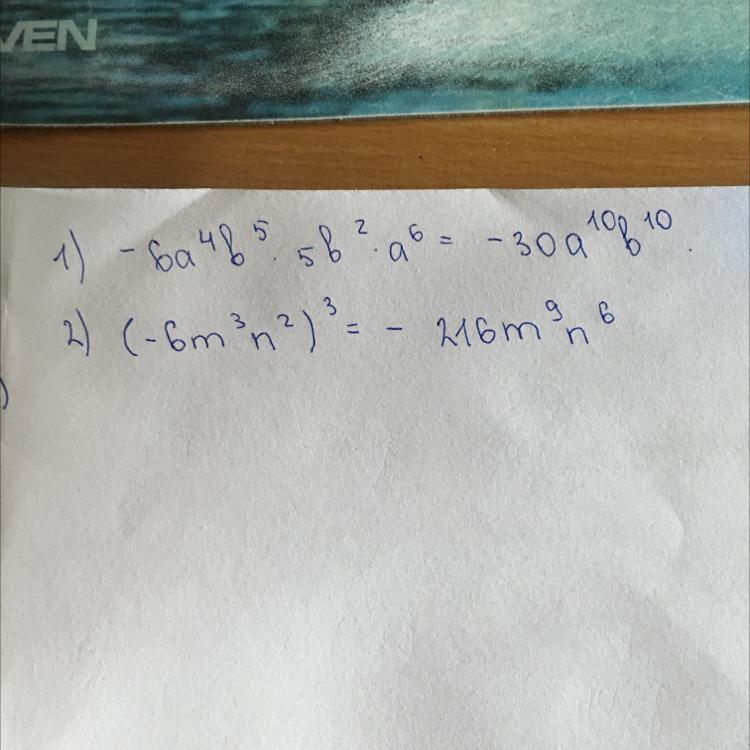 VEN
1) -6a⁴b⁵ · 5b² · a⁶ = -30a¹⁰b¹⁰.
2) (-6m³n²)³ = - 216m⁹n⁶
)